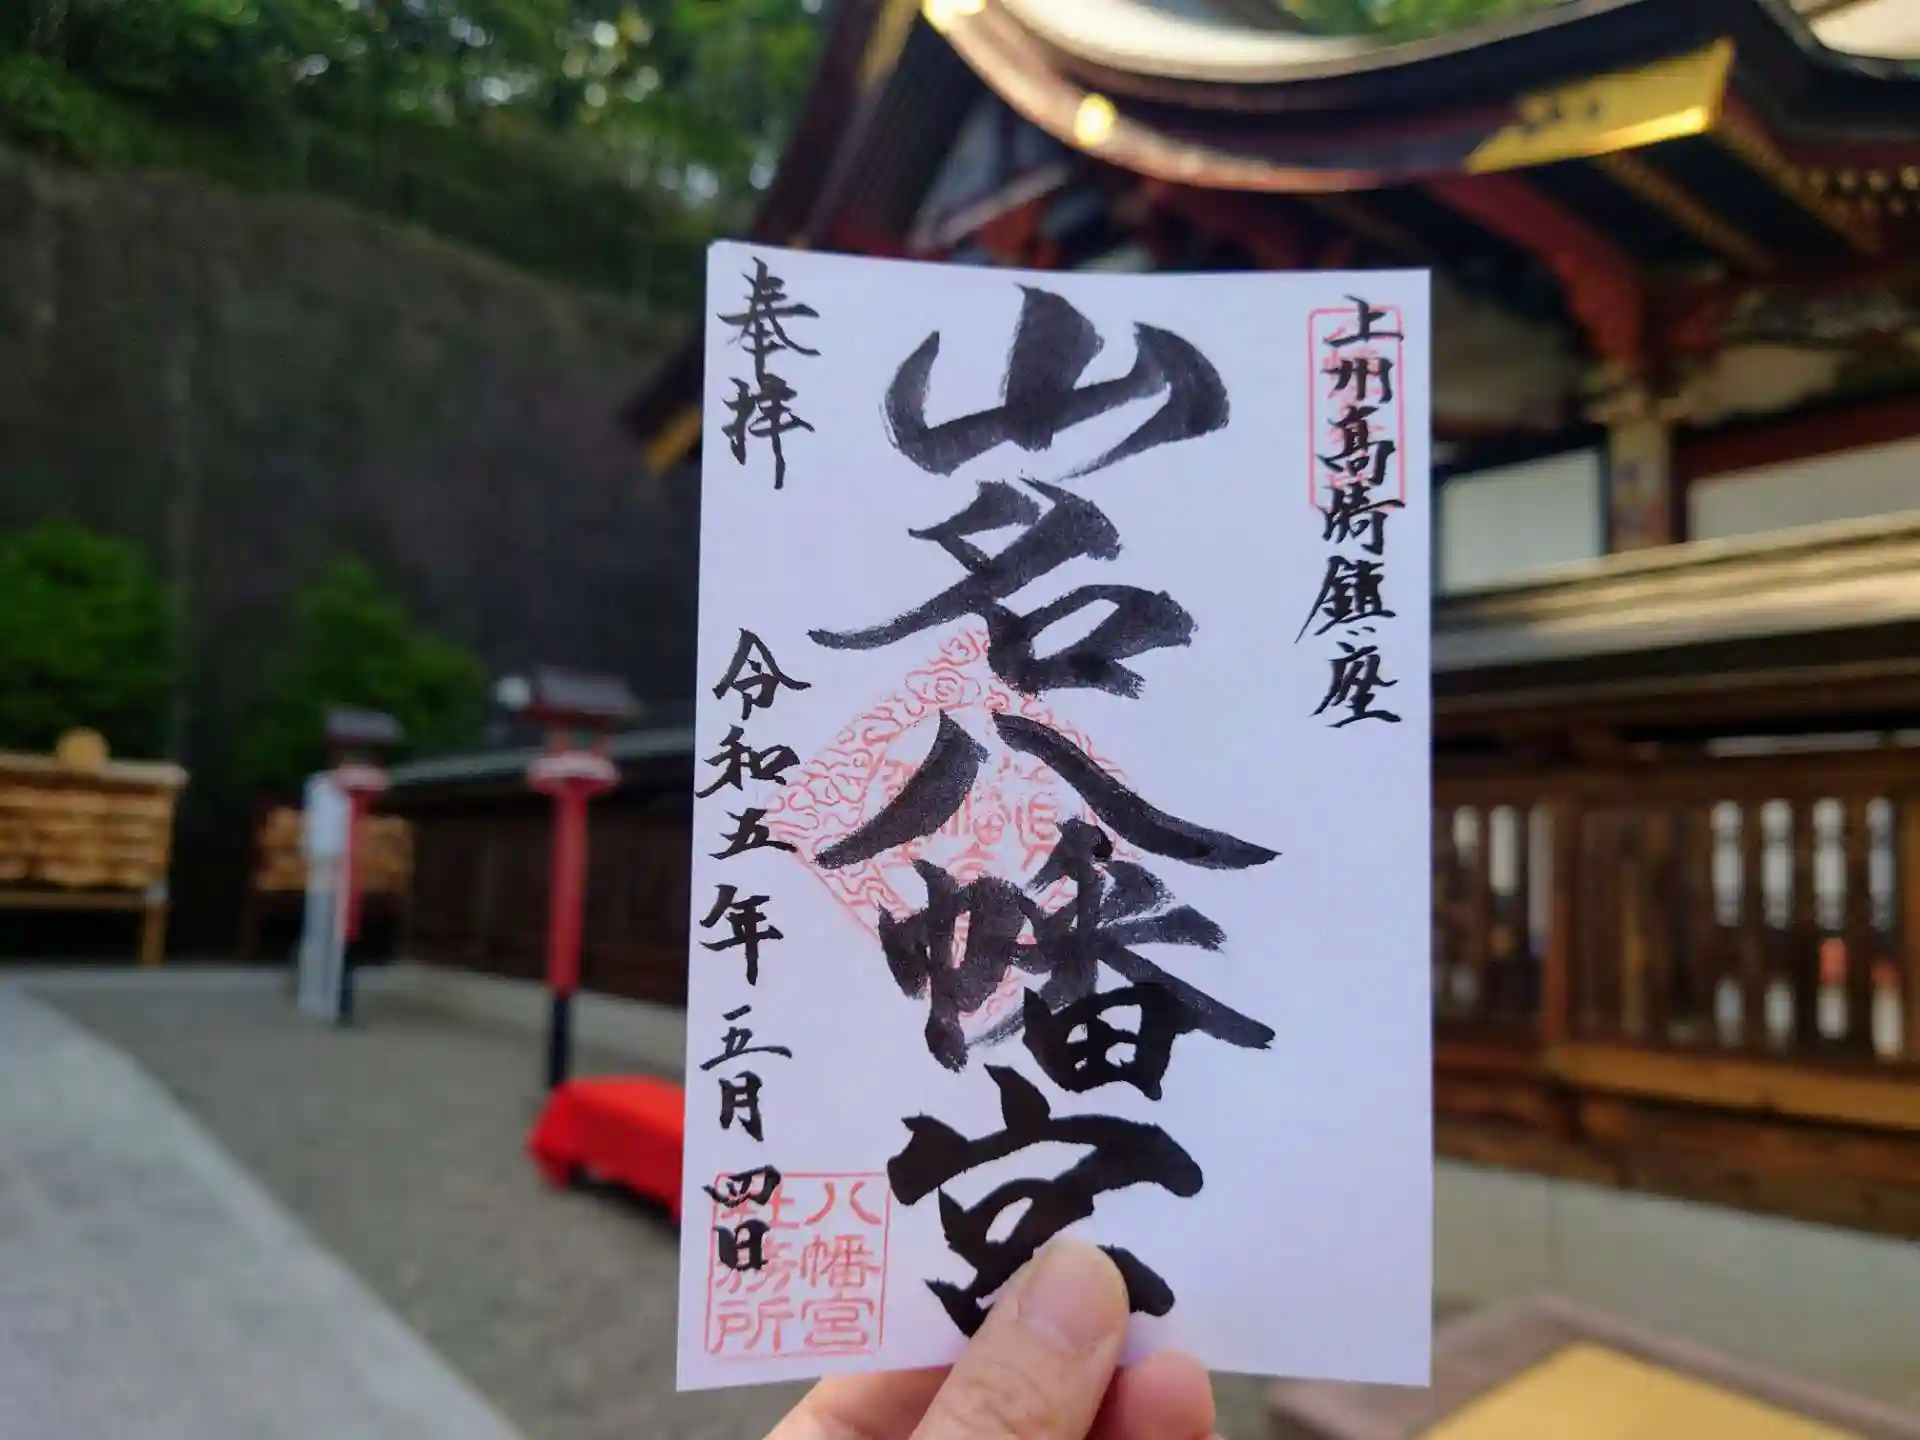 上州高崎鎮座
山名八幡宮
奉拝
令和五年五月四日
八幡宮
社務所